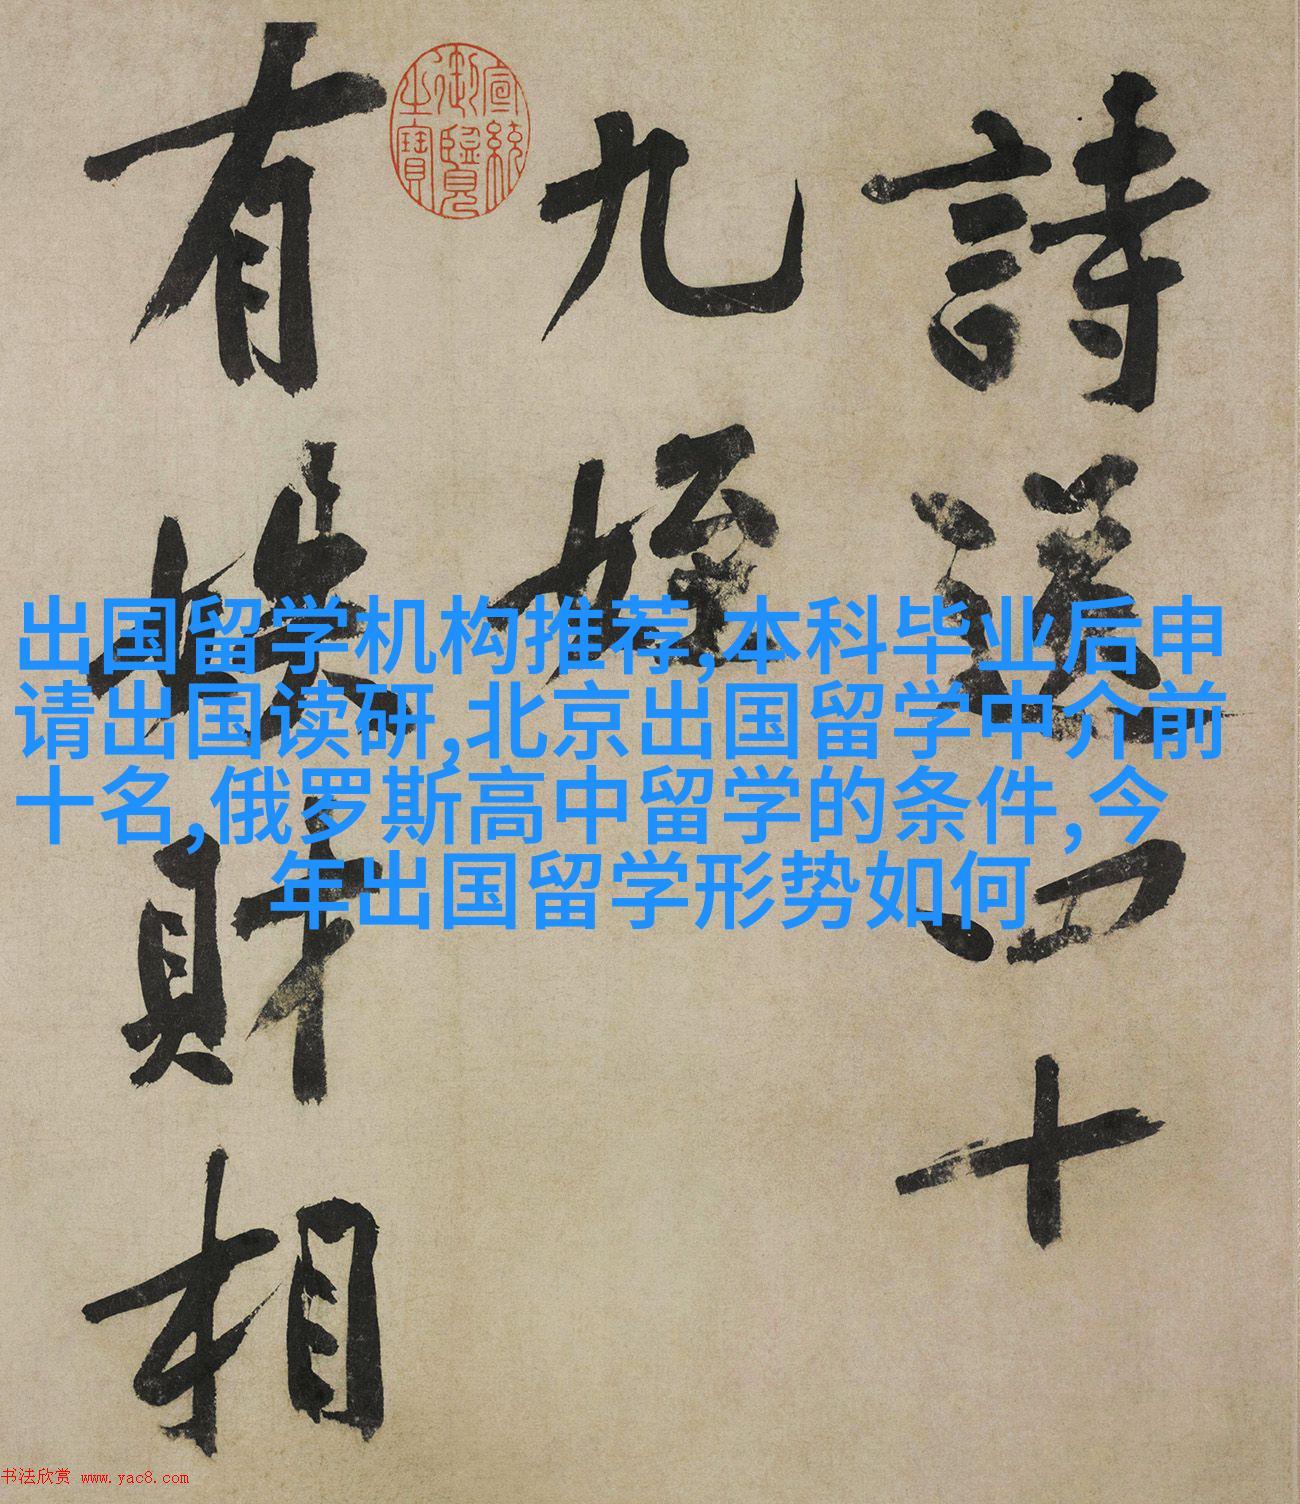 詩送四十
九姪
有財相
宣統御覽之寶
出国留学机构推荐,本科毕业后申
请出国读研,北京出国留学中介前
十名,俄罗斯高中留学的条件,今
年出国留学形势如何
书法欣赏 www.yac8.com